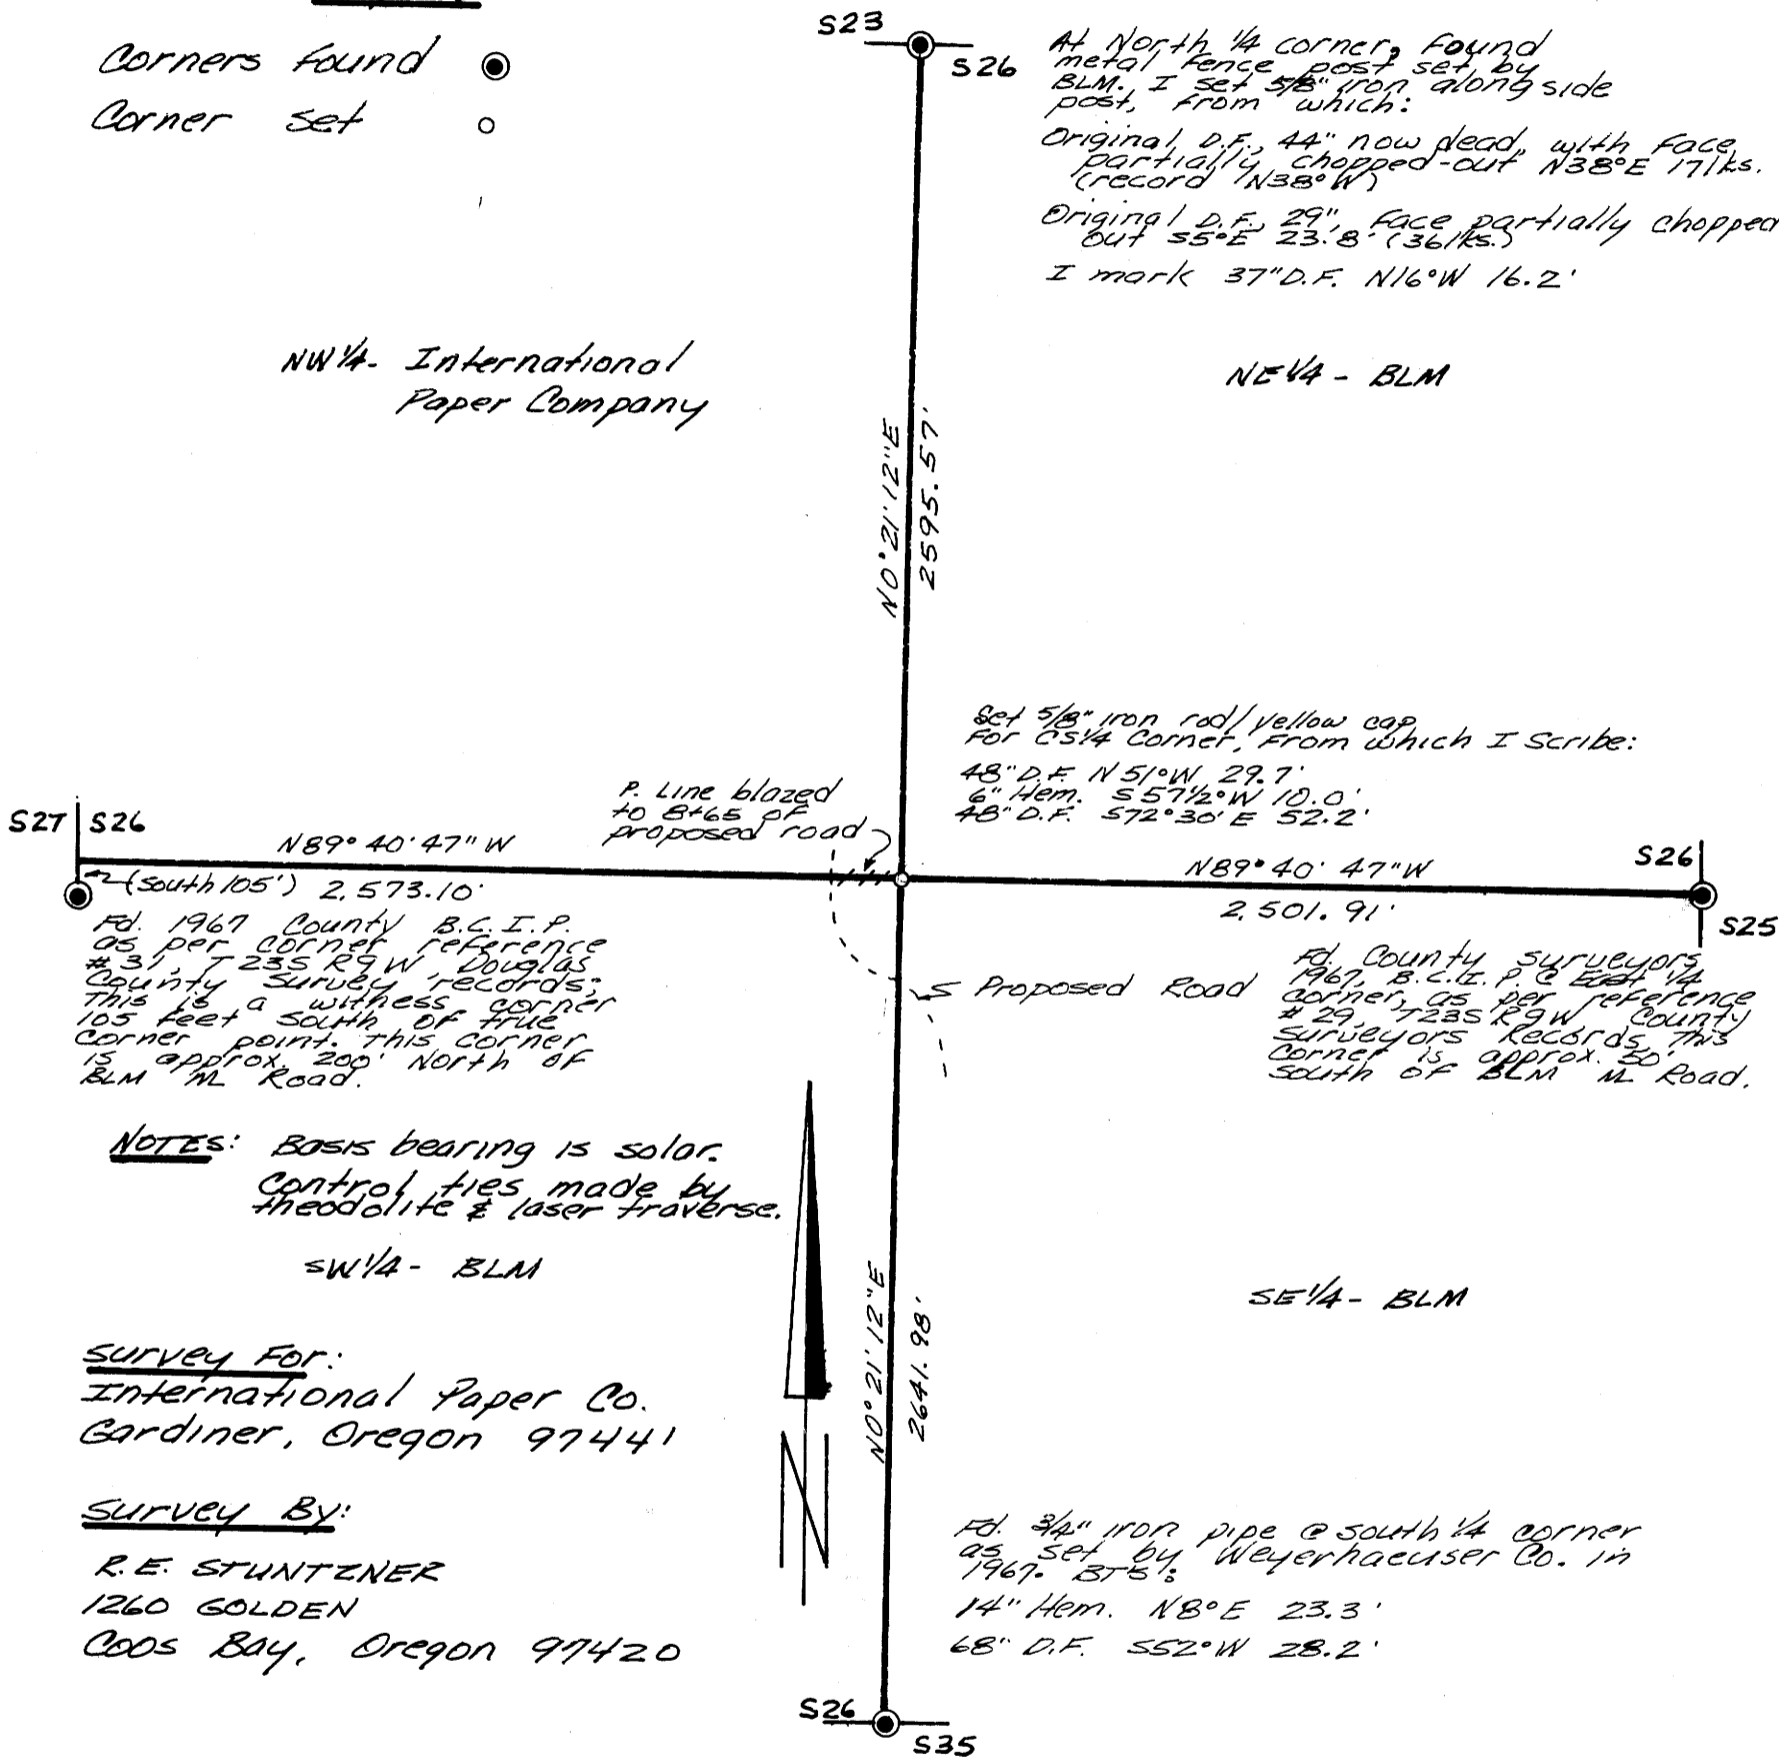 Corners Found
Corner Set
S23
S26
At North 1/4 corner, Found
metal fence post set by
BLM. I set 5/8" iron alongside
post, From which:
Original D.F., 44" now dead, with Face
partially chopped-out N38°E 17lks.
(record N38°W)
Original D.F., 29", Face partially chopped
out S5°E 23.8' (36lks.)
I mark 37" D.F. N16°W 16.2'
NW 1/4- International
Paper Company
NE 1/4 - BLM
N0°21'12"E
2595.57'
Set 5/8" iron rod/yellow cap
For CS1/4 Corner, From which I Scribe:
48" D.F. N51°W 29.7'
6" Hem. S57 1/2°W 10.0'
48" D.F. S72°30'E 52.2'
P. Line blazed
to 8+65 of
proposed road
S27 S26
N89°40'47"W
(South 105') 2,573.10'
N89°40'47"W
2,501.91'
S26
S25
Fd. 1967 County B.C.I.P.
as per corner reference
#31, T23S R9W, Douglas
County Survey records;
This is a witness corner
105 feet south of true
Corner point. This corner
is approx. 200' North of
BLM ML Road.
Proposed Road
Fd. County surveyors
1967, B.C.I.P. @ East 1/4
Corner, as per reference
#29, T23S R9W County
Surveyors Records. This
Corner is approx. 50'
South of BLM ML Road.
NOTES: Basis bearing is solar.
Control ties made by
theodolite & laser traverse.
SW 1/4 - BLM
N0°21'12"E
2641.98'
SE 1/4 - BLM
Survey For:
International Paper Co.
Gardiner, Oregon 97441
N
Survey By:
R.E. STUNTZNER
1260 GOLDEN
COOS BAY, Oregon 97420
Fd. 3/4" iron pipe @ south 1/4 corner
as set by Weyerhaeuser Co. in
1967. BT'S:
14" Hem. N8°E 23.3'
68" D.F. S52°W 28.2'
S26
S35